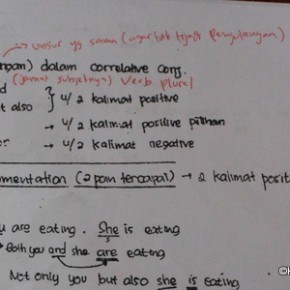 → unsur yg sama (agar tdk terjadi pengulangan)
pan) dalam correlative conj.
(jamak subjeknya) verb plural
d ?
t also } u/ 2 kalimat positive
→ u/ 2 kalimat positive pilihan
or → u/ 2 kalimat negative
mentation (2 poin tercapai) → 2 kalimat posit
u are eating. She is eating
→ Both you and she are eating
Not only you but also she is eating